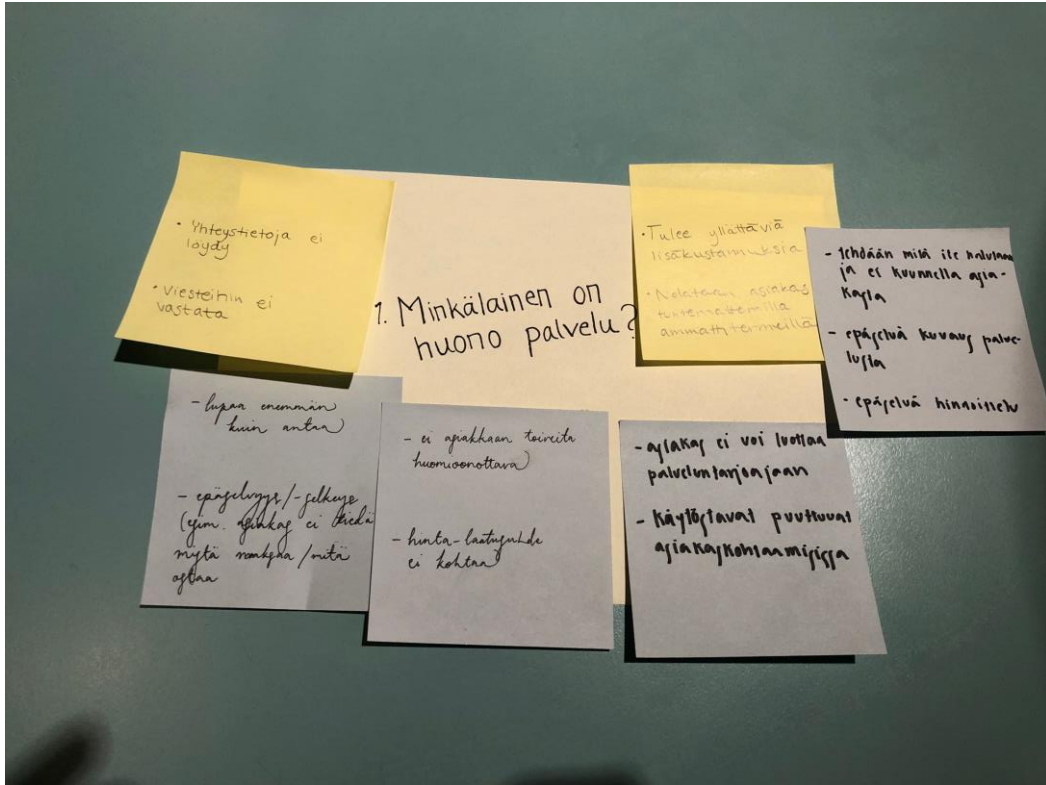 1. Minkälainen on
huono palvelu?
• Yhteystietoja ei
löydy
• Viesteihin ei
vastata
• Tulee yllättäviä
lisäkustannuksia
• Nolataan asiakas
tuntemattomilla
ammattitermeillä
- tehdään mitä ite halutaan
ja ei kuunnella asia-
kasta
- epäselvä kuvaus palve-
lusta
- epäselvä hinnoittelu
- lupaa enemmän
kuin antaa
- epäselvyys/-selkeys
(esim. asiakas ei tiedä
mistä maksaa/mitä
ostaa
- ei asiakkaan toiveita
huomioonottava
- hinta-laatusuhde
ei kohtaa
- asiakas ei voi luottaa
palveluntarjoajaan
- Käytöstavat puuttuvat
asiakaskohtaamisissa